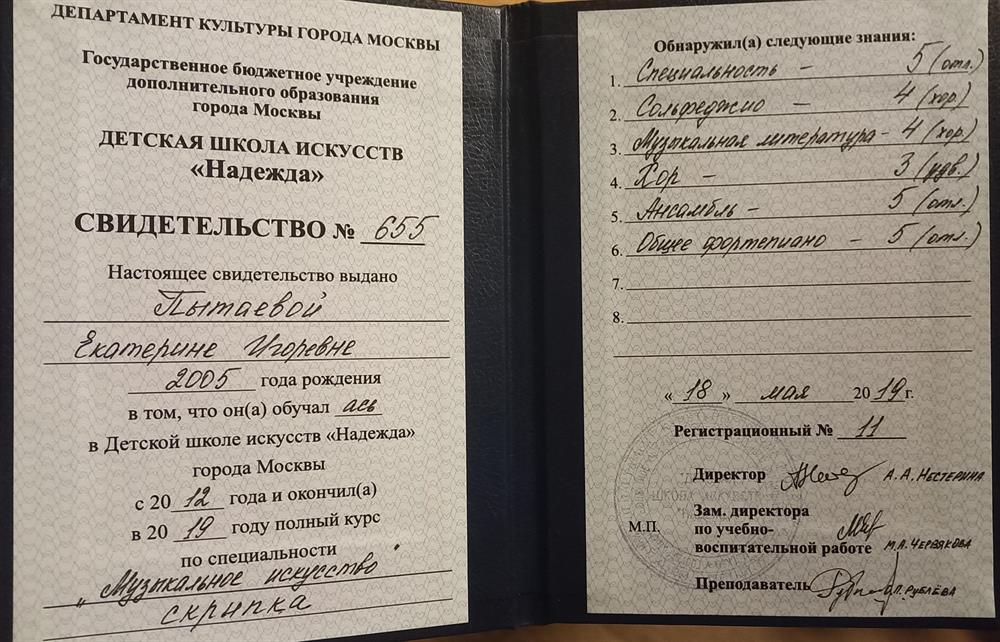 ДЕПАРТАМЕНТ КУЛЬТУРЫ ГОРОДА МОСКВЫ
Государственное бюджетное учреждение
дополнительного образования
города Москвы
ДЕТСКАЯ ШКОЛА ИСКУССТВ
«Надежда»
СВИДЕТЕЛЬСТВО № 655
Настоящее свидетельство выдано
Пытаевой
Екатерине Игоревне
2005 года рождения
в том, что он(а) обучал ась
в Детской школе искусств «Надежда»
города Москвы
с 2012 года и окончил(а)
в 2019 году полный курс
по специальности
„Музыкальное искусство"
скрипка
Обнаружил(а) следующие знания:
1. Специальность – 5 (отл.)
2. Сольфеджио – 4 (хор.)
3. Музыкальная литература – 4 (хор.)
4. Хор – 3 (удв.)
5. Ансамбль – 5 (отл.)
6. Общее фортепиано – 5 (отл.)
7.
8.
« 18 » мая 2019 г.
Регистрационный № 11
Директор А.А. Нестерина
Зам. директора
М.П. по учебно-
воспитательной работе М.А. Червякова
Преподаватель Рублёва